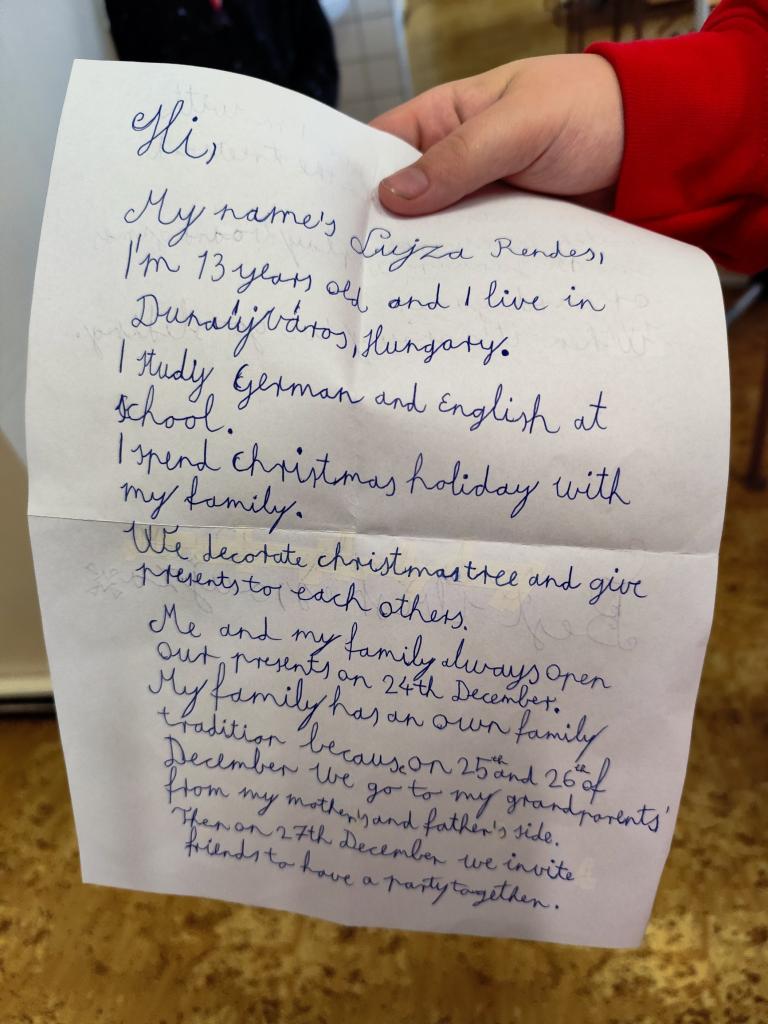 Hi,
My name's Lujza Rendes,
I'm 13 years old and I live in
Dunaújváros, Hungary.
I study German and English at
school.
I spend christmas holiday with
my family.
We decorate christmas tree and give
presents to each others.
Me and my family always open
our presents on 24th December.
My family has an own family
tradition because on 25th and 26th of
December we go to my grandparents'
from my mother's and father's side.
Then on 27th December we invite
friends to have a party together.